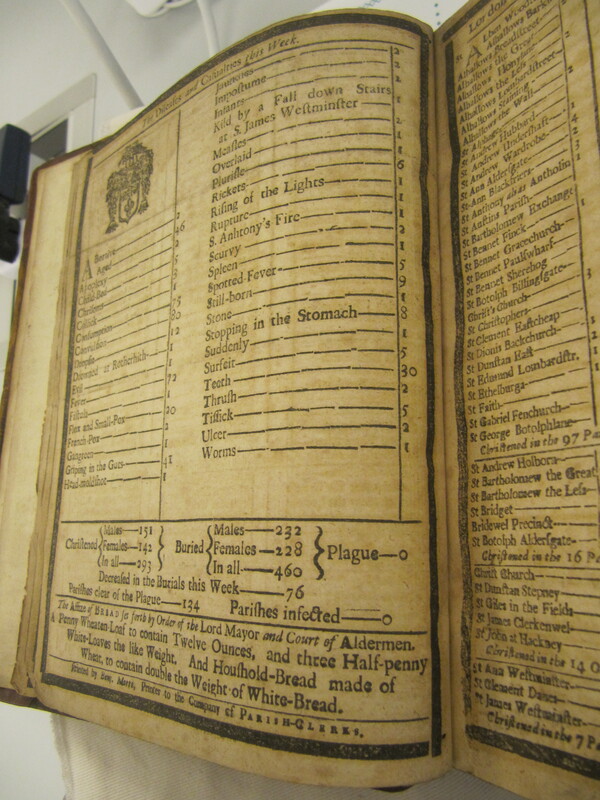 The Diseases and Casualties this Week.
Abortive 2
Aged 46
Apoplexy 2
Child-Bed 3
Chrisomes
Colick
Consumption 80
Convulsion
Dropsie 12
Drowned at Rotherhith 1
Evil 1
Fever 72
Fistula 1
Flox and Small-Pox 20
French-Pox 2
Gangreen 1
Griping in the Guts 41
Head-mouldshot 1
Jaundies 2
Impostume 2
Infants
Kild by a Fall down Stairs
at S. James Westminster
Measles
Overlaid
Plurisie 1
Rickets 6
Rising of the Lights
Rupture 1
S. Anhtony's Fire 1
Scurvy
Spleen
Spotted-Fever 5
Still-born 9
Stone 1
Stopping in the Stomach 8
Suddenly 1
Surfeit 5
Teeth 30
Thrush 2
Tissick 5
Ulcer 2
Worms 1
Christened Males 151
Females 142
In all 293
Buried Males 232
Females 228
In all 460
Plague 0
Decreased in the Burials this Week 76
Parishes clear of the Plague 134 Parishes infected 0
The Assize of BREAD set forth by Order of the Lord Mayor and Court of Aldermen.
A Penny Wheaten-Loaf to contain Twelve Ounces, and three Half-penny
White-Loaves the like Weight. And Houshold-Bread made of
Wheat, to contain double the Weight of White-Bread.
Printed by Ben. Motte, Printer to the Company of PARISH-CLERKS.
London
Alban Woodstreet
Alhallows Barking
Alhallows Breadstreet
Alhallows the Great
Alhallows Honylane
Alhallows the Less
Alhallows Lombardstreet
Alhallows Staining
Alhallows the Wall
St Alphage
St Andrew Hubbard
St Andrew Undershaft
St Andrew Wardrobe
St Ann Aldersgate
St Ann Blackfriers
St Anthony alias Antholin
St Austins Parish
St Bartholomew Exchange
St Bennet Finck
St Bennet Gracechurch
St Bennet Paulswharf
St Bennet Sherehog
St Botolph Billingsgate
Christ's Church
St Christophers
St Clement Eastcheap
St Dionis Backchurch
St Dunstan East
St Edmund Lombardstr.
St Ethelburga
St Faith
St Gabriel Fenchurch
St George Botolphlane
Christened in the 97 Pa
St Andrew Holborn
St Bartholomew the Great
St Bartholomew the Less
St Bridget
Bridewel Precinct
St Botolph Aldersgate
Christened in the 16 Pa
Christ Church
St Dunstan Stepney
St Giles in the Fields
St James Clerkenwel
St John at Hackney
Christened in the 14 O
St Ann Westminster
St Clement Danes
St James Westminster
Christened in the 7 Pa